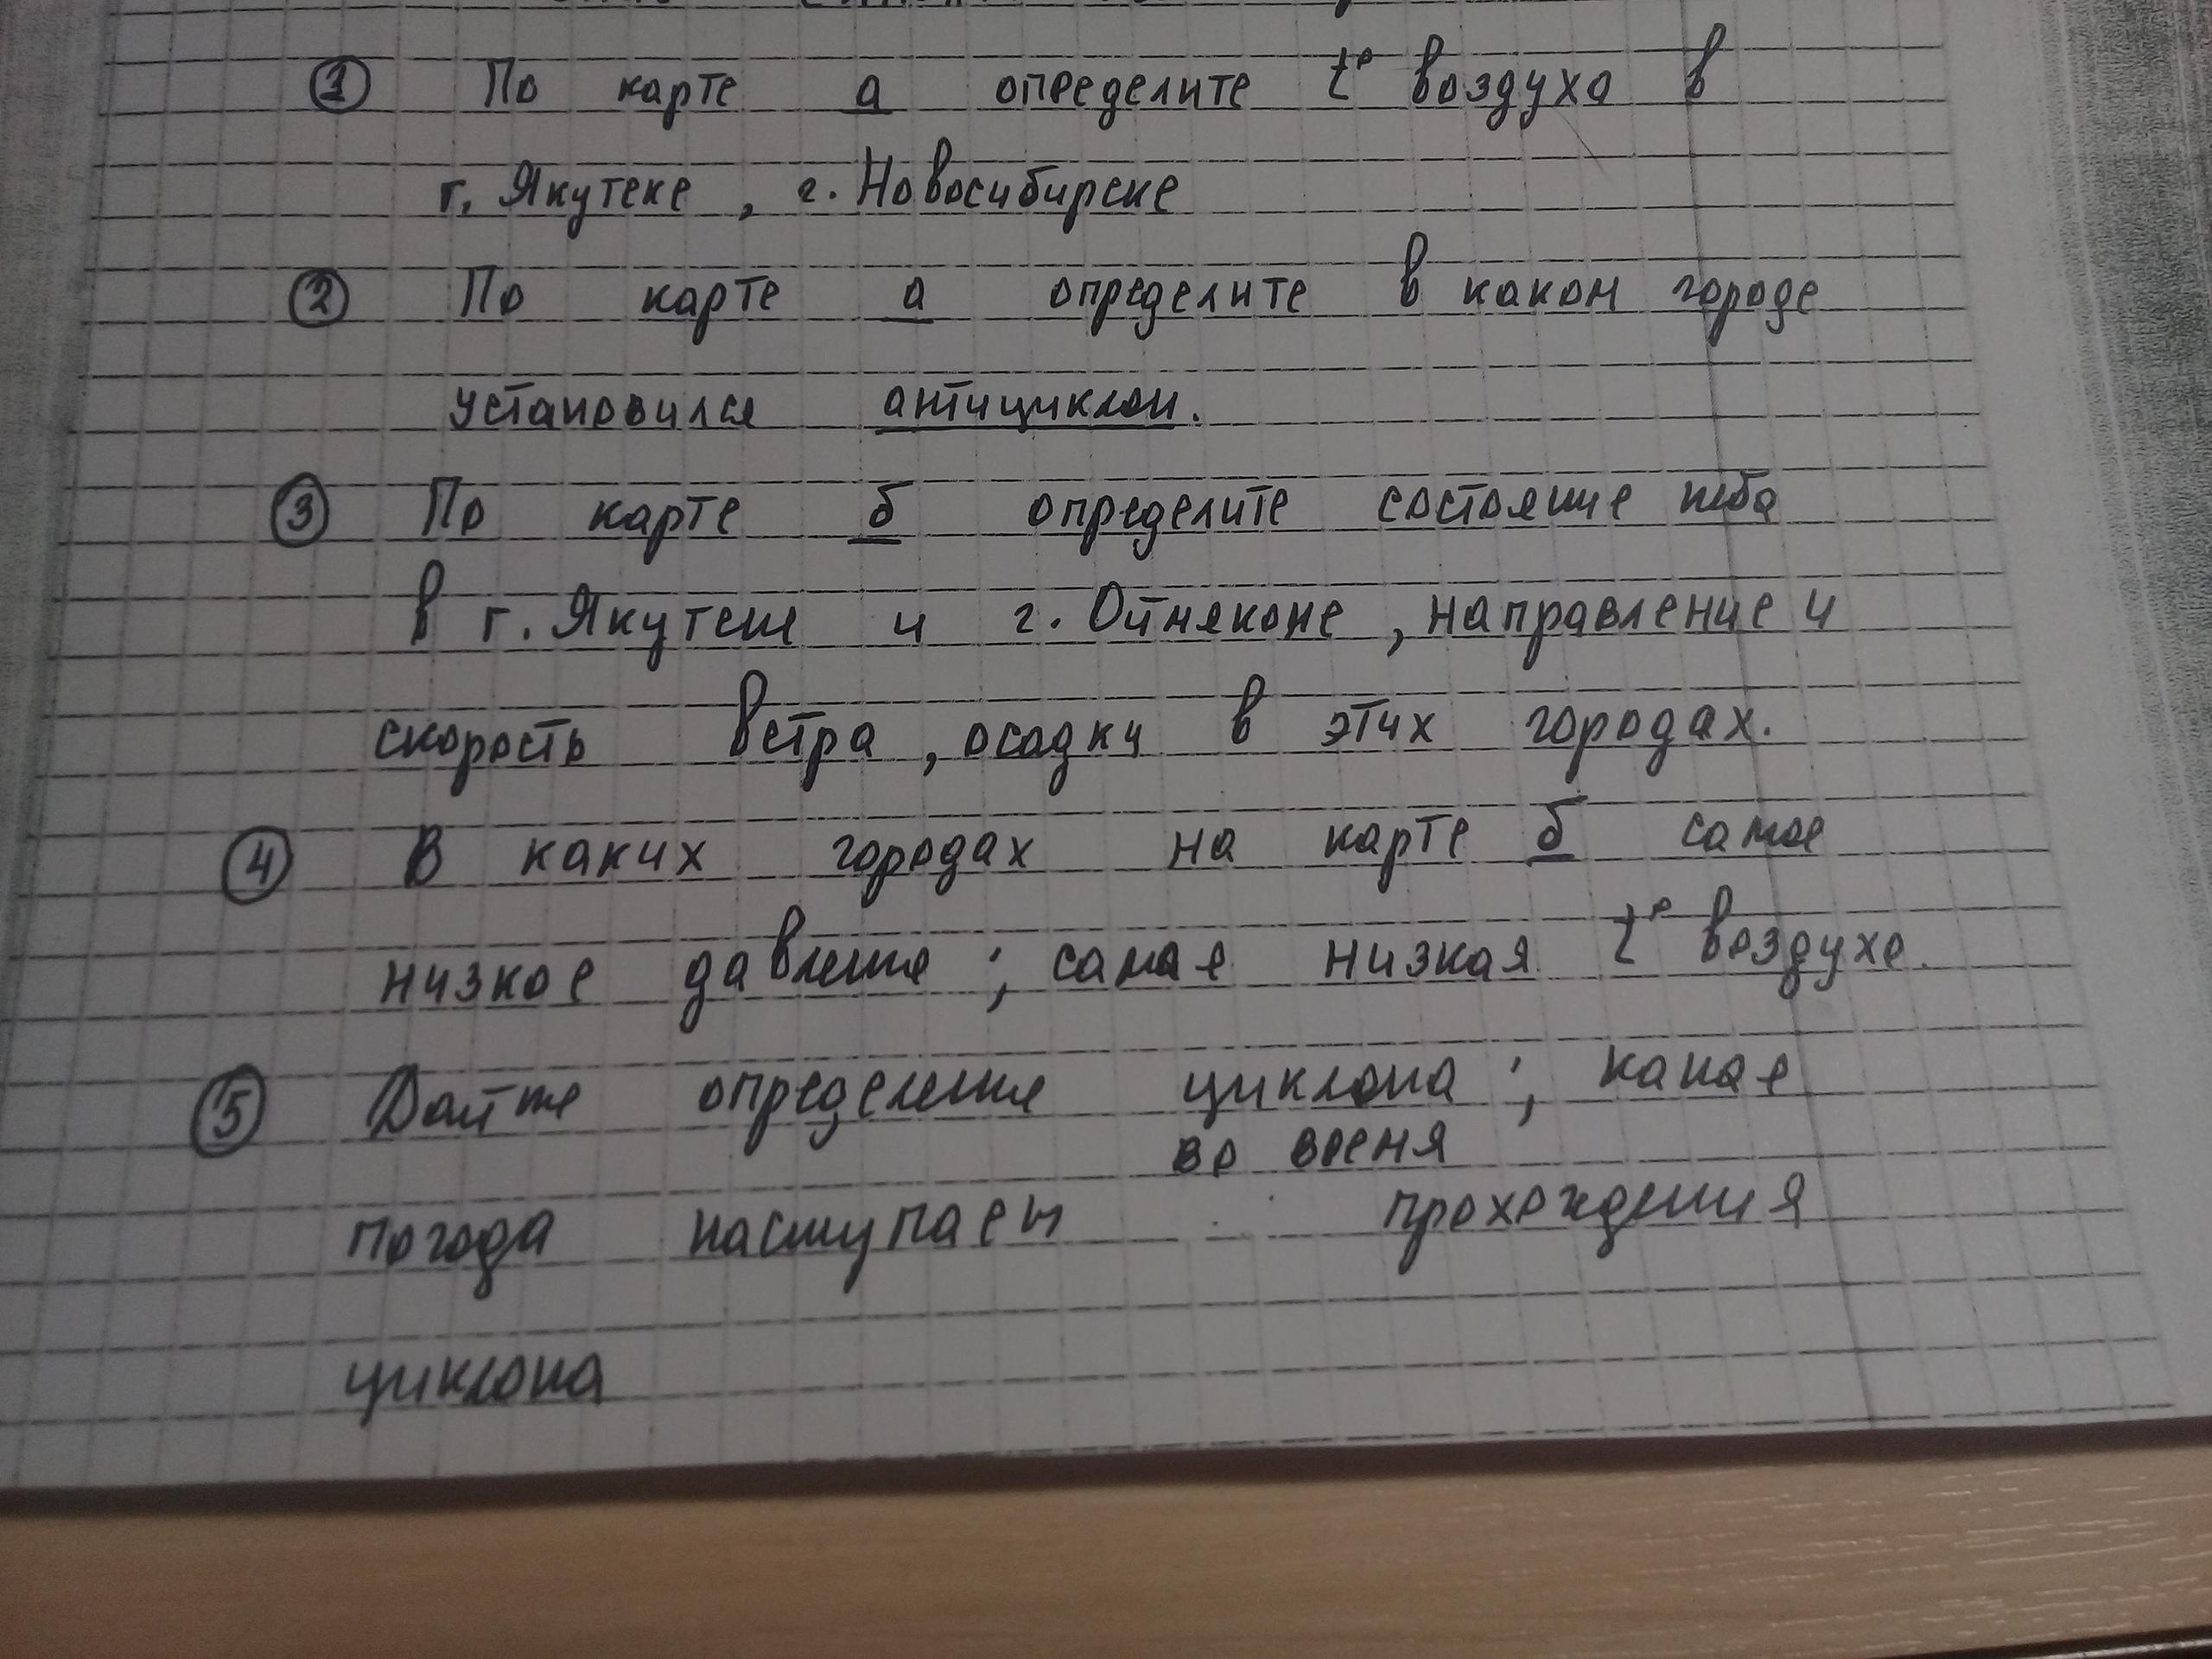 ① По карте а определите t° воздуха в
г. Якутске, г. Новосибирске
② По карте а определите в каком городе
установился антициклон.
③ По карте б определите состояние неба
в г. Якутске и г. Оймяконе, направление и
скорость ветра, осадки в этих городах.
④ В каких городах на карте б самое
низкое давление; самая низкая t° воздуха.
⑤ Дайте определение циклона; какая
во время
погода наступает прохождения
циклона